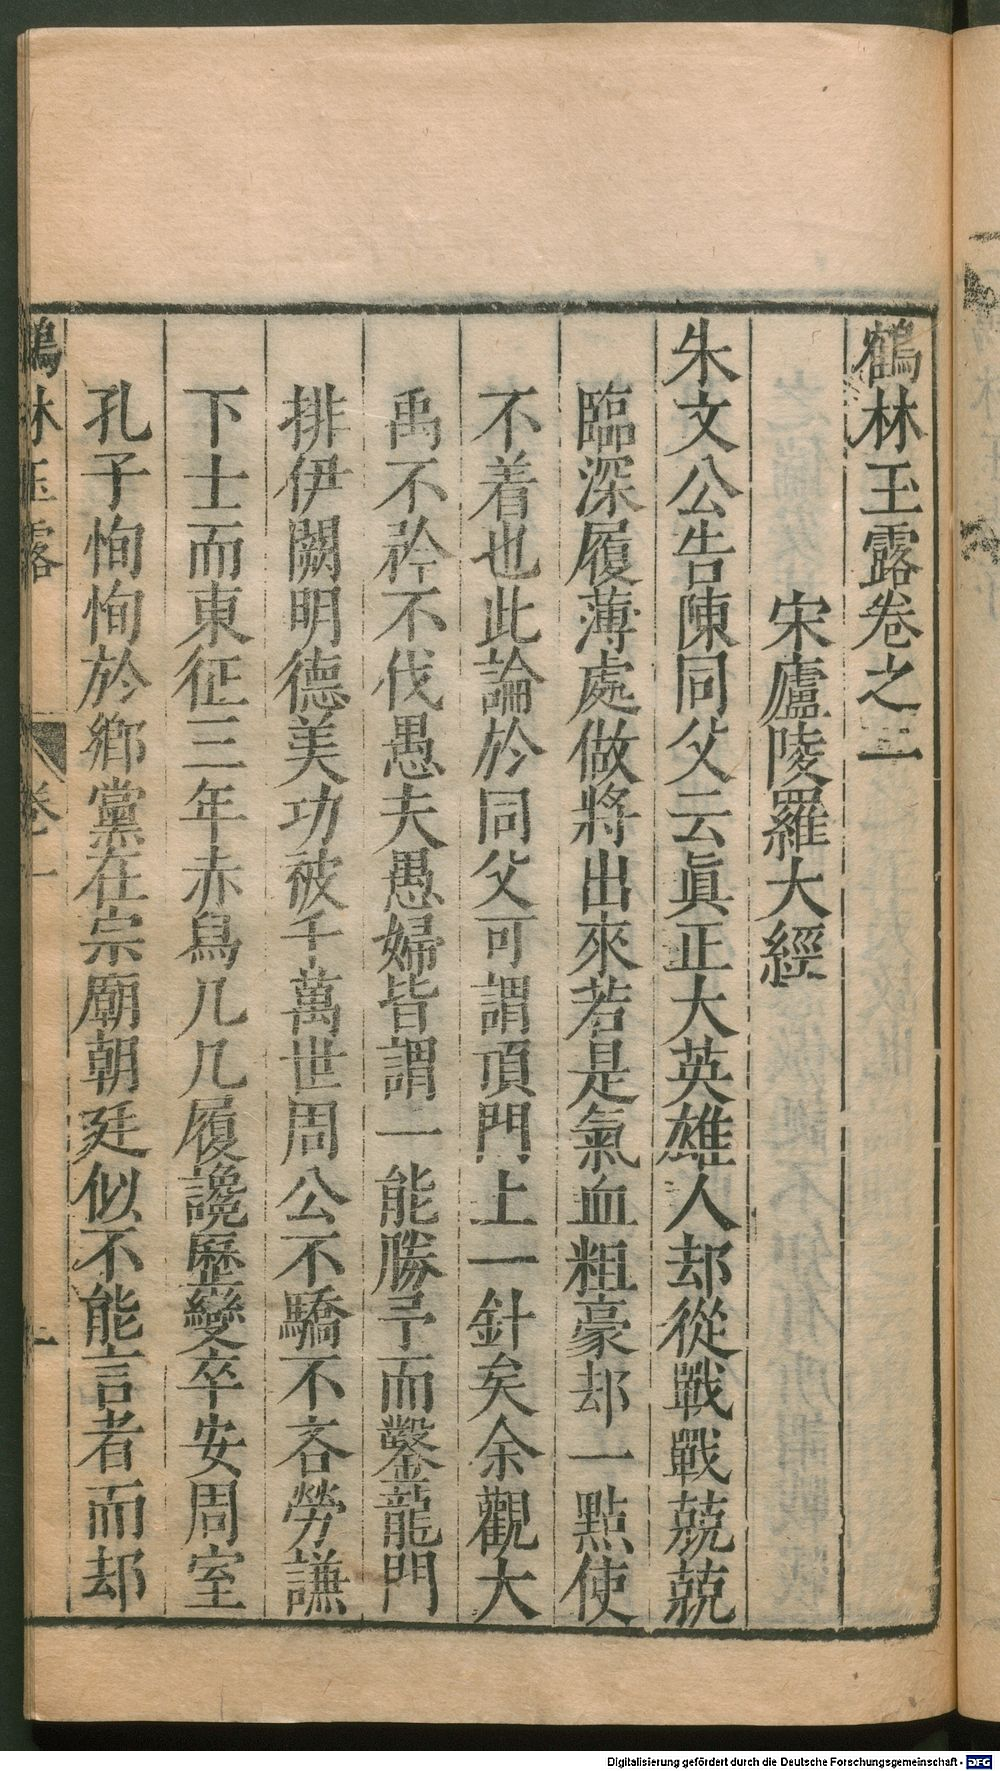 鶴林玉露卷之一
宋廬陵羅大經
朱文公告陳同父云眞正大英雄人却從戰戰兢兢
臨深履薄處做將出來若是氣血粗豪却一點使
不着也此論於同父可謂頂門上一針矣余觀大
禹不矜不伐愚夫愚婦皆謂一能勝予而鑿龍門
排伊闕明德美功被千萬世周公不驕不吝勞謙
下士而東征三年赤舄几几履讒歷變卒安周室
孔子恂恂於鄉黨在宗廟朝廷似不能言者而却
鶴林玉露 卷一
Digitalisierung gefördert durch die Deutsche Forschungsgemeinschaft - DFG